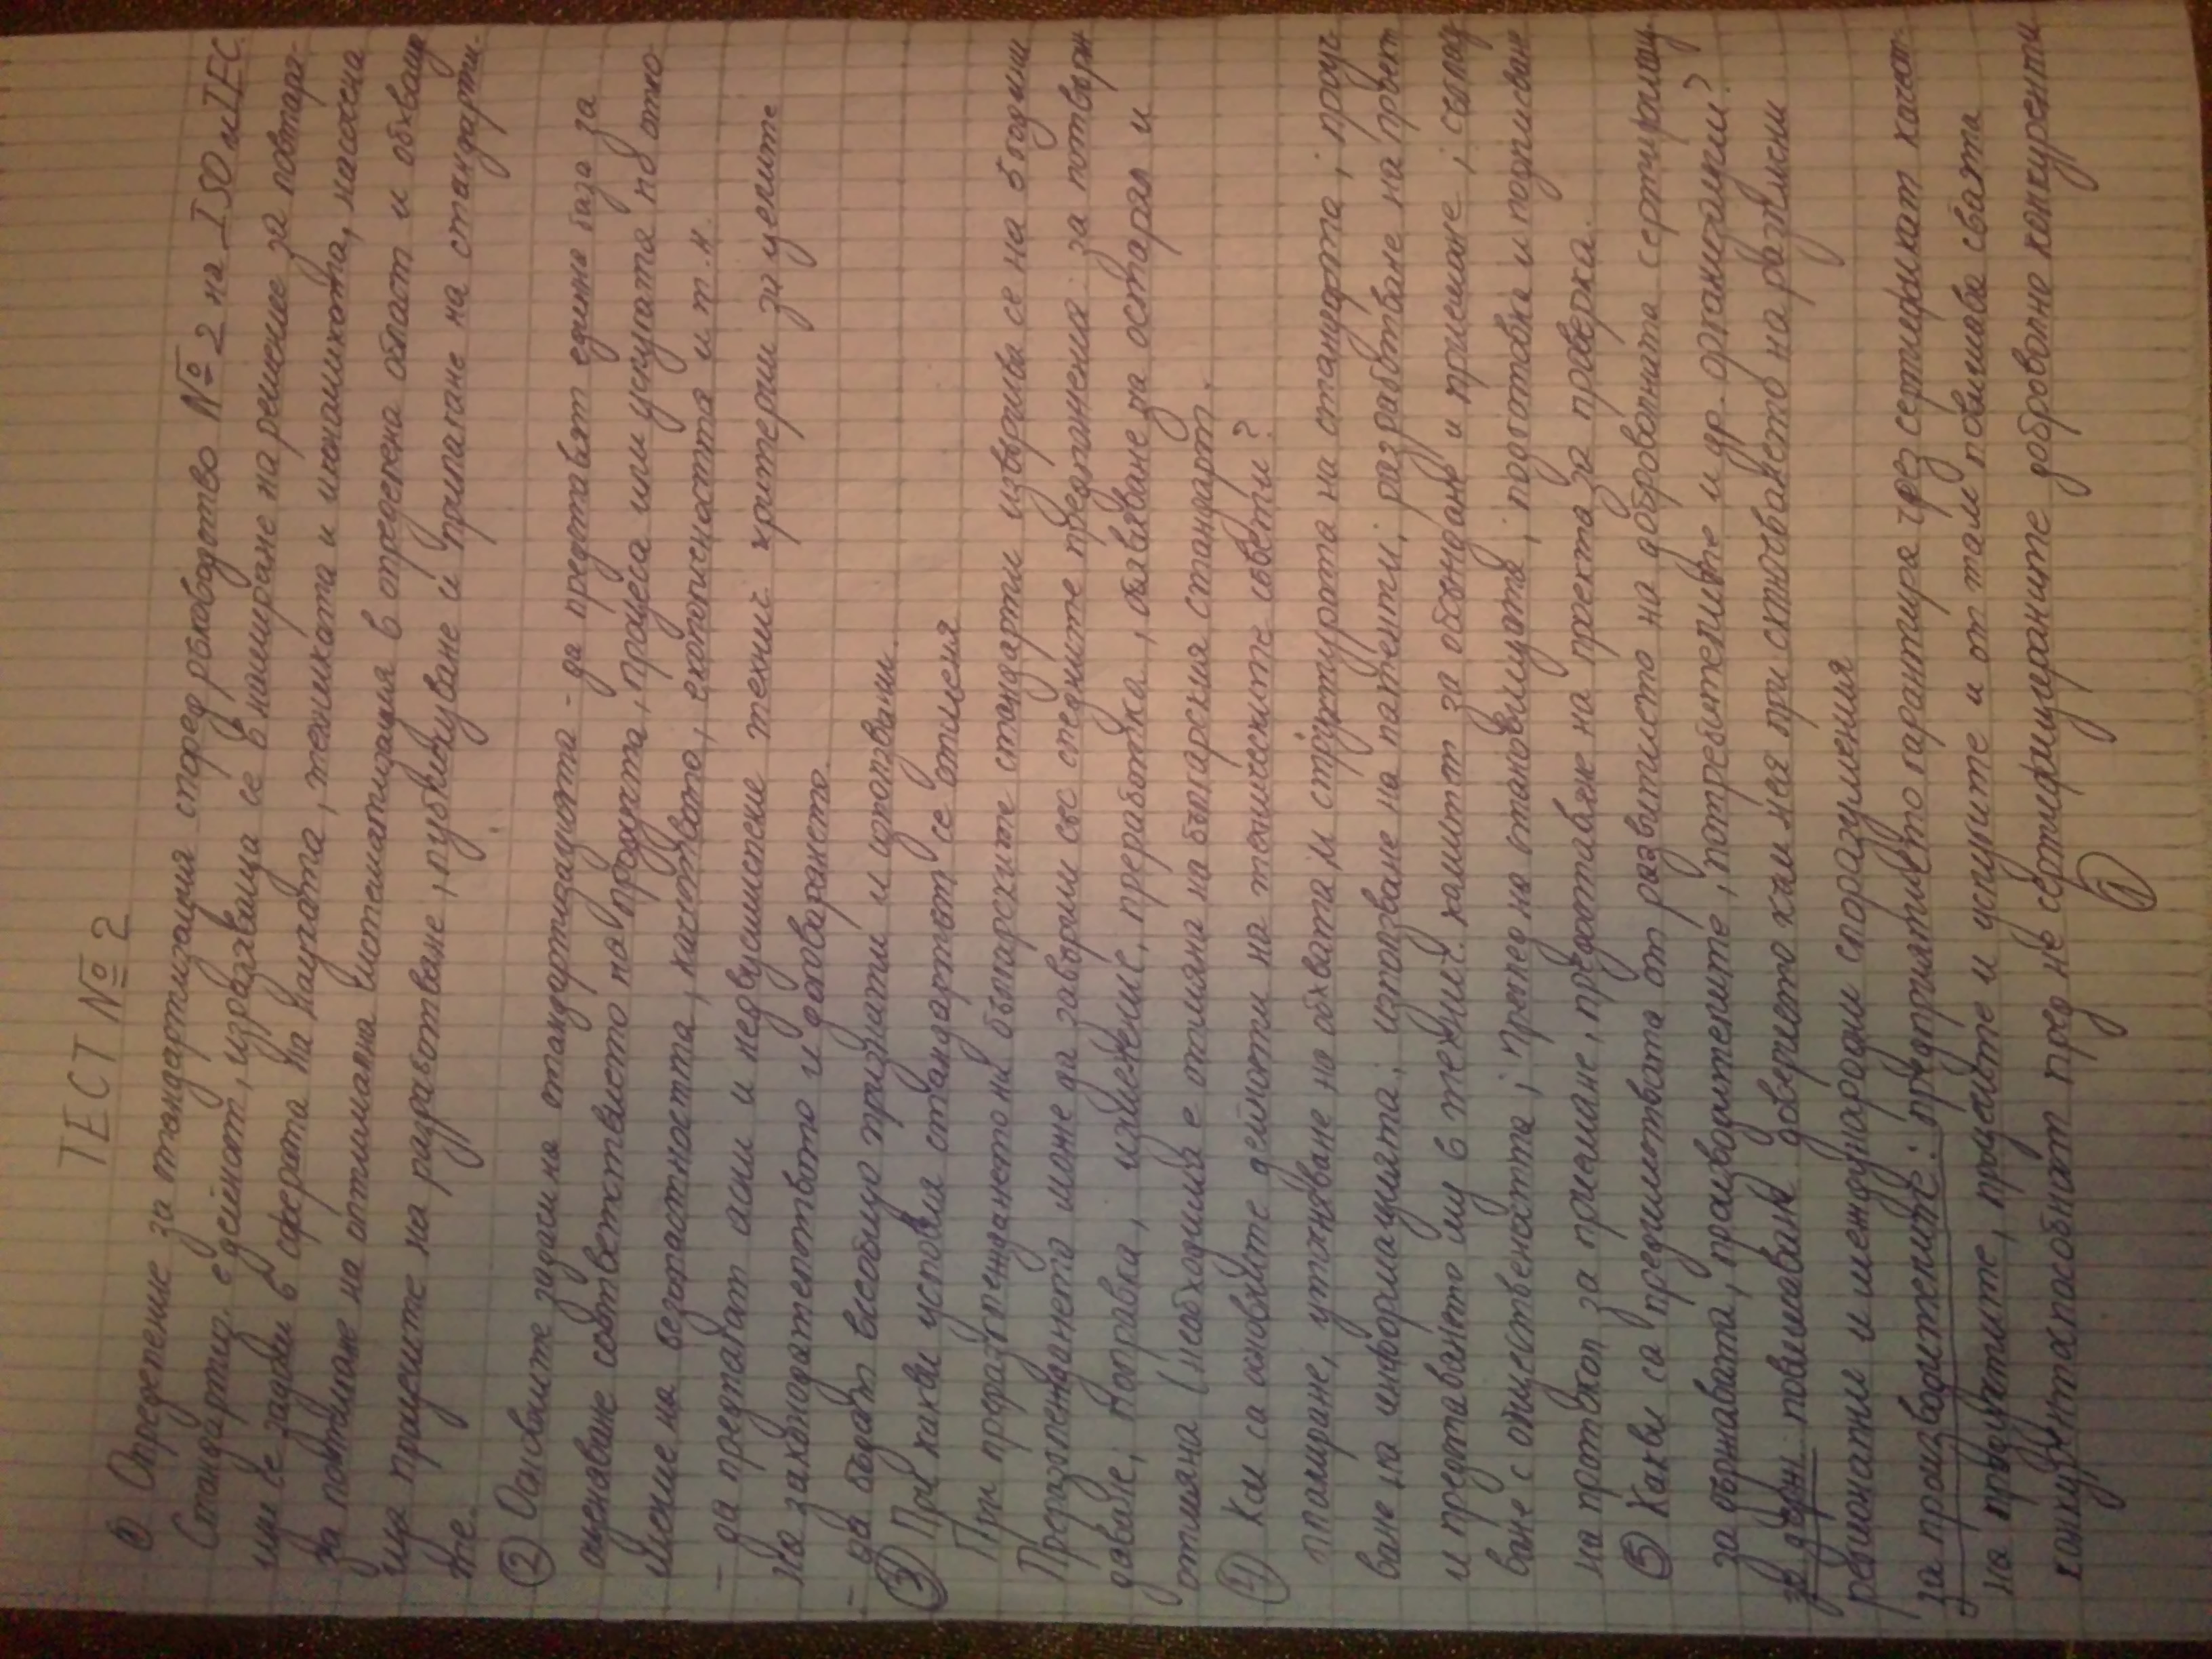 ТЕСТ № 2
① Определение за стандартизация според ръководство № 2 на ISO и IEC.
Стандартиз. е дейност, изразяваща се в намиране на решение за повтаря-
щи се задачи в сферата на науката, техниката и икономиката, насочена
за постигане на оптимална систематизация в определена област и обхваща
ща процесите на разработване, публикуване и прилагане на стандарти-
те.
② Основните задачи на стандартизацията - да представят единна база за
оценяване съответствието на продукта, процеса или услугата по отно
шение на безопасността, качеството, екологичността и т.н.
- да предлагат ясни и недвусмислени технич. критерии за целите
на законодателството и договарянето.
- да бъдат всеобщо признати и използвани.
③ При какви условия стандартът се отменя
При преразглеждането на българските стандарти извършва се на 5 години
Преразглеждането може да завърши със следните предложения: за потвърж
даване; поправка, изменение, преработка, обявяване за остарял и
отмяна (необходима е отмяна на българския стандарт.
④ Кои са основните дейности на техническите комитети?
планиране, уточняване на обхвата и структурата на стандарта; проуч
ване на информацията; използване на патенти; разработване на проект
и представянето му в технич. комитет за обсъждане и приемане; съглас
ване с обществеността; преглед на становищата; подготовка и подписване
на протокол за приемане, предоставяне на проекта за проверка.
⑤ Какви са предимствата от развитието на доброволната сертификац.
за държавата, производителите, потребителите и др. организации?
за държ: повишаване доверието към нея при сключването на различни
регионални и международни споразумения
за производителите: предприятието гарантира чрез сертификат качест-
на продуктите, процесите и услугите и от там повишава своята
конкурентаспособност пред не сертифицираните доброволно конкуренти
①